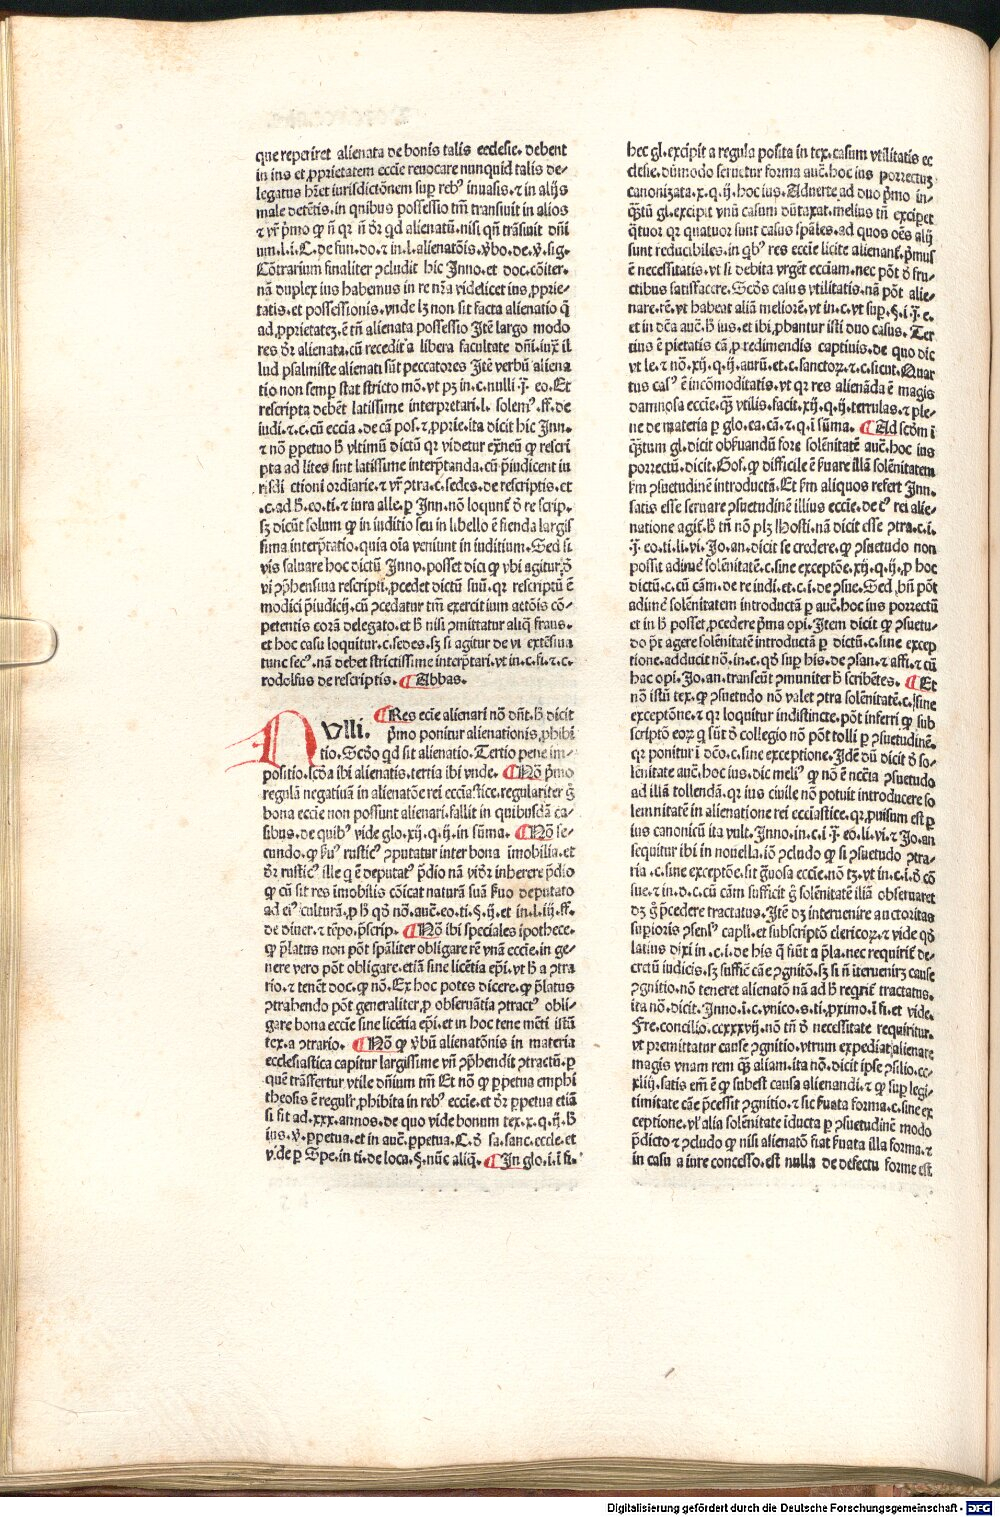 que reperiret alienata de bonis talis ecclesie. debent
in ius et ꝓprietatem eccīe reuocare nunquid talis de-
legatus hꝫet iurisdictōnem suꝑ rebꝰ inuasis. ⁊ in alijs
male detētis. in quibus possessio tm̄ transiuit in alios
⁊ vr̄ p̄mo ꝙ n̄ qr n̄ dr̄ qd alienatū. nisi qn̄ trāsiuit dn̄i
um. l. i. C. de fun. do. ⁊ in. l. alienatōis. v̄bo. de. v̄. sig.
Cōtrarium finaliter ↄcludit hic Inno. et doc. cōiter.
nā duplex ius habemus in re nr̄a videlicet ius ꝓprie-
tatis. et possessionis. vnde lꝫ non sit facta alienatio q̄
ad ꝓprietatez. ē tn̄ alienata possessio Itē largo modo
res dr̄ alienata. cū recedit a libera facultate dn̄i. iux̄ il
lud psalmiste alienati sūt peccatores Itē verbū aliena
tio non semꝑ stat stricto mō. vt pꝫ in. c. nulli. j̄. eo. Et
rescripta debēt latissime interpretari. l. solemꝰ. ff. de
iudi. ⁊ c. cū eccia. de cā pos. ⁊ ꝓprie. ita dicit hic Inn.
⁊ nō ꝑpetuo h̄ vltimū dictū qr videtur ex̄neū ꝙ rescri
pta ad lites sint latissime interp̄tanda. cū p̄iudicent iu
risdi ctioni ordiarie. ⁊ vr̄ ↄtra. c. sedes. de rescriptis. et
. c. ad h̄. eo. ti. ⁊ iura alle. ꝑ Inn. nō loqunt̄ d̄ re scrip.
sꝫ dicūt solum ꝙ in iuditio seu in libello ē fienda largis
sima interp̄tatio. quia oīa veniunt in iuditium. Sed si
vis saluare hoc dictū Inno. posset dici ꝙ vbi agitur d̄
vi ↄp̄hensiua rescripti, ꝓcedet dictū suū. qr rescriptū ē
modici p̄iudicij. cū ↄcedatur tm̄ exercitium actōis cō-
petentis corā delegato. et h̄ nisi ↄmittatur aliq̄ fraus.
et hoc casu loquitur. c. sedes. sꝫ si agitur de vi extēsiua
tunc secꝰ. nā debet strictissime interp̄tari. vt in. c. fi. ⁊ c.
rodolfus de rescriptis. ¶ Abbas.
¶ Res eccīe alienari nō dn̄t. h̄ dicit
Nvlli. p̄mo ponitur alienationis ꝓhibi
tio. Scd̄o qd sit alienatio. Tertio pene im-
positio. scd̄a ibi alienatis. tertia ibi vnde. ¶ Nō p̄mo
regulā negatiuā in alienatōe rei ecciastice. regulariter ḡ
bona eccie non possunt alienari. fallit in quibusdā ca-
sibus. de quibꝰ vide glo. xij. q. ij. in sūma. ¶ Nō se-
cundo. ꝙ ẜuꝰ rusticꝰ ↄputatur inter bona imobilia. et
dr̄ rusticꝰ ille q ē deputatꝰ p̄dio nā vidr̄ inherere p̄dio
ꝙ cū sit res imobilis cōicat naturā suā ẜuo deputato
ad eiꝰ culturā. ꝓ h̄ qd̄ nō. auc̄. eo. ti. §. ij. et in. l. iij. ff.
de diuer. ⁊ tēpo. p̄scrip. ¶ Nō ibi speciales ipothece.
ꝙ p̄latus non pōt spāliter obligare rē vnā eccie. in ge-
nere vero pōt obligare. etiā sine licētia ep̄i. vt h̄ a ↄtra
rio. ⁊ tenēt doc. ꝙ nō. Ex hoc potes dicere. ꝙ p̄latus
ↄtrahendo pōt generaliter, ꝓ obseruātia ↄtractꝰ obli-
gare bona eccie sine licētia ep̄i. et in hoc tene mēti istū
tex. a ↄtrario. ¶ Nō ꝙ v̄bū alienatōnis in materia
ecclesiastica capitur largissime vn̄ ↄp̄hendit ↄtractū. ꝑ
quē trāsfertur vtile dn̄ium tm̄ Et nō ꝙ ꝑpetua emphi
theosis ē regulr̄ ꝓhibita in rebꝰ eccie. et dr̄ ꝑpetua etiā
si sit ad. xxx. annos. de quo vide bonum tex. x. q. ij. h̄
ius. v̄. ꝑpetua. et in auc̄. ꝑpetua. C. d̄ sa. sanc. eccle. et
vide ꝑ Spe. in ti. de loca. §. nūc aliq̄. ¶ In glo. i. i fi.
hec gl. excipit a regula posita in tex. casum vtilitatis ec
clesie. dūmodo seruetur forma auc̄. hoc ius porrectuꝫ
canonizata. x. q. ij. hoc ius. Aduerte ad duo p̄mo in-
q̄ꝫtū gl. excipit vnū casum dūtaxat. melius tn̄ exciperet
q̄tuor qr quatuor sunt casus spāles. ad quos oēs alij
sunt reducibiles. in qbꝰ res eccie licite alienant̄. p̄mus
ē necessitatis. vt si debita vrget ecciam. nec pōt d̄ fru-
ctibus satisfacere. Scd̄s casus vtilitatis. nā pōt alie-
nare. rē. vt habeat aliā meliorē. vt in. c. vt suꝑ. §. i. j̄. e.
et in dc̄a auc̄. h̄ ius. et ibi ꝓbantur isti duo casus. Ter
tius ē pietatis cā ꝓ redimendis captiuis. de quo dic
vt le. ⁊ nō. xij. q. ij. aurū. et. c. sanctoꝝ. ⁊ c. sicut. Quar
tus casꝰ ē incōmoditatis. vt qr res alienāda ē magis
damnosa eccie. q̄ꝫ vtilis. facit. xij. q. ij. terrulas. ⁊ ple
ne de materia ꝑ glo. ea. cā. ⁊. q. i sūma. ¶ Ad scd̄m i
q̄ꝫtum gl. dicit obẜuandū fore solēnitatē auc̄. hoc ius
porrectū. dicit. Gof. ꝙ difficile ē ẜuare illā solēnitatem
ẜm ↄsuetudinē introductā. Et ẜm aliquos refert Inn.
satis esse seruare ↄsuetudinē illius eccie. de cꝰ rei alie-
natione agit̄. h̄ tn̄ nō plꝫ Hosti. nā dicit esse ↄtra. c. i.
. j̄. eo. ti. li. vi. Io. an. dicit se credere. ꝙ ↄsuetudo non
possit adiūe solēnitatē. c. sine exceptōe. xij. q. ij., ꝓ hoc
dictū. c. cū cām. de re iudi. et. c. i. de ↄsue. Sed hn̄ pōt
adiune solēnitatem introductā ꝑ auc̄. hoc ius porrectū
et in h̄ posset ꝓcedere p̄ma opi. Item dicit ꝙ ↄsuetu-
do p̄t agere solēnitatē introductā ꝑ dictū. c. sine excep
tione. adducit nō. in. c. qd̄ suꝑ his. de ↄsan. ⁊ affi. ⁊ cū
hac opi. Io. an. transeūt ↄmuniter h̄ scribētes. ¶ Et
nō istū tex. ꝙ ↄsuetudo nō valet ↄtra solēnitatē. c. sine
exceptōne. ⁊ qr loquitur indistincte. pōt inferri ꝙ sub
scriptō eoꝝ q sūt d̄ collegio nō pōt tolli ꝑ ↄsuetudinē.
qr ponitur i dc̄o. c. sine exceptione. Idē dū dicit d̄ so-
lēnitate auc̄. hoc ius. dic meliꝰ ꝙ nō ē nccīa ↄsuetudo
ad illā tollendā. qr ius ciuile nō potuit introducere so
lemnitatē in alienatione rei ecciastice. qr ꝓuisum est ꝑ
ius canonicū ita vult. Inno. in. c. i j̄. eo. li. vi. ⁊ Io. an
sequitur ibi in nouella. iō ↄcludo ꝙ si ↄsuetudo ↄtra-
ria. c. sine exceptōe. sit ḡuosa eccie. nō tꝫ. vt in. c. i. d̄ cō
sue. ⁊ in. d. c. cū cām sufficit ḡ solēnitatē illā obseruaret
dꝫ ḡ p̄cedere tractatus. Itē dꝫ interuenire auctoritas
suꝑioris ↄsensꝰ capli. et subscriptō clericoꝝ. ⁊ vide qd̄
latius dixi in. c. i. de his q̄ fiūt a p̄la. nec requirit̄ de-
cretū iudicis. sꝫ suffic̄ cāe ↄgnitō. sꝫ si n̄ iterueniꝫ cause
ↄgnitio. nō teneret alienatō nā ad h̄ reqrit̄ tractatus.
ita nō. dicit. Inno. i. c. vnico. s. ti. ꝓximo. i fi. et vide.
Fre. concilio. ccxxxvij. nō tn̄ d̄ necessitate requiritur.
vt premittatur cause ↄgnitio. vtrum expediat alienare
magis vnam rem q̄ꝫ aliam. ita nō. dicit ipse ↄsilio. cc-
xliij. satis em̄ ē ꝙ subest causa alienandi. ⁊ ꝙ suꝑ legi-
timitate cāe p̄cessit ↄgnitio. ⁊ sic ẜuata forma. c. sine ex
ceptione. vl̓ alia solēnitate iducta ꝑ ↄsuetudinē modo
p̄dicto ⁊ ↄcludo ꝙ nisi alienatō fiat ẜuata illa forma. ⁊
in casu a iure concesso. est nulla de defectu forme est
Digitalisierung gefördert durch die Deutsche Forschungsgemeinschaft - DFG